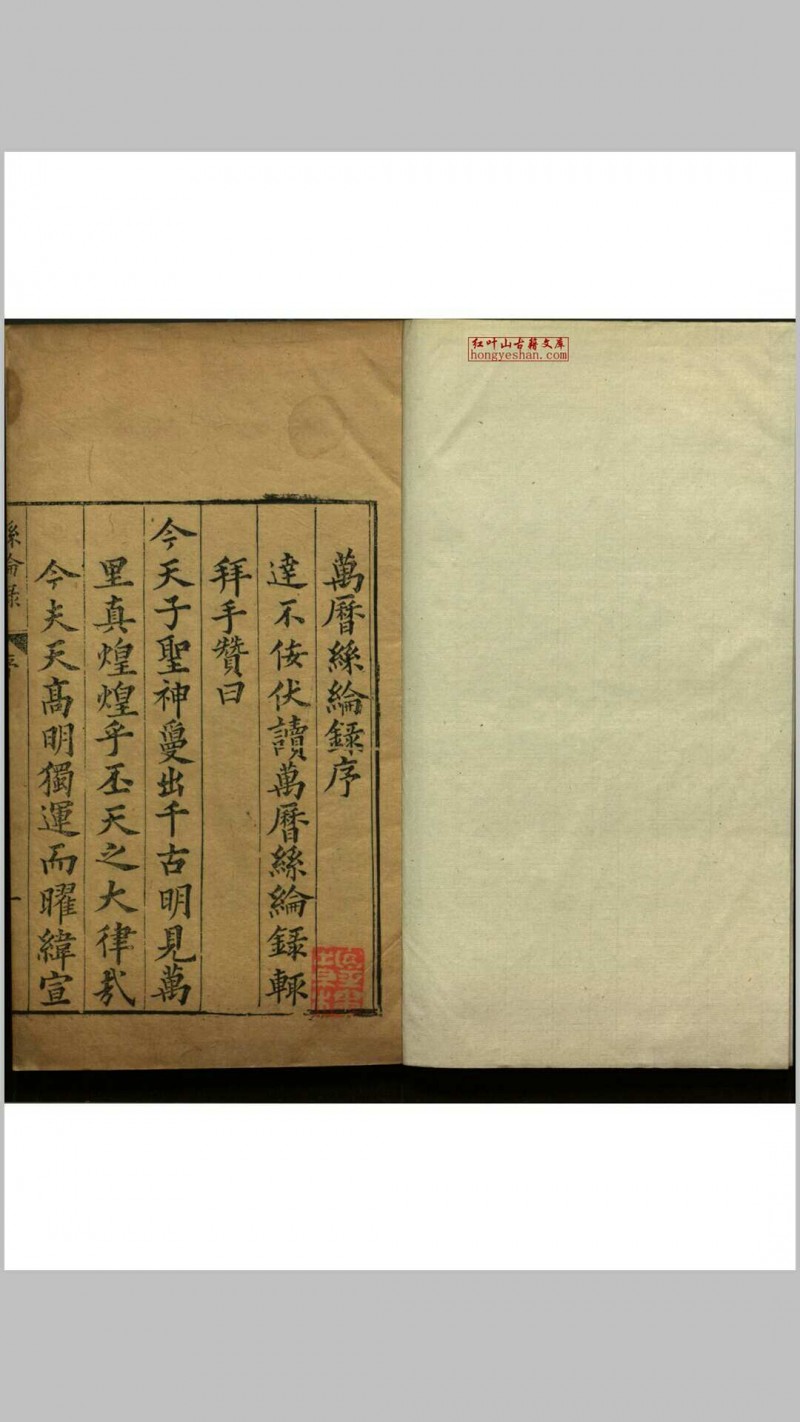 红叶山古籍文库
hongyeshan.com
萬曆絲綸錄序
達不佞伏讀萬曆絲綸錄輒
拜手贊曰
今天子聖神敻出千古明見萬
里真煌煌乎丕天之大律哉
今夫天高明獨運而曜緯宣
絲綸錄
序
一